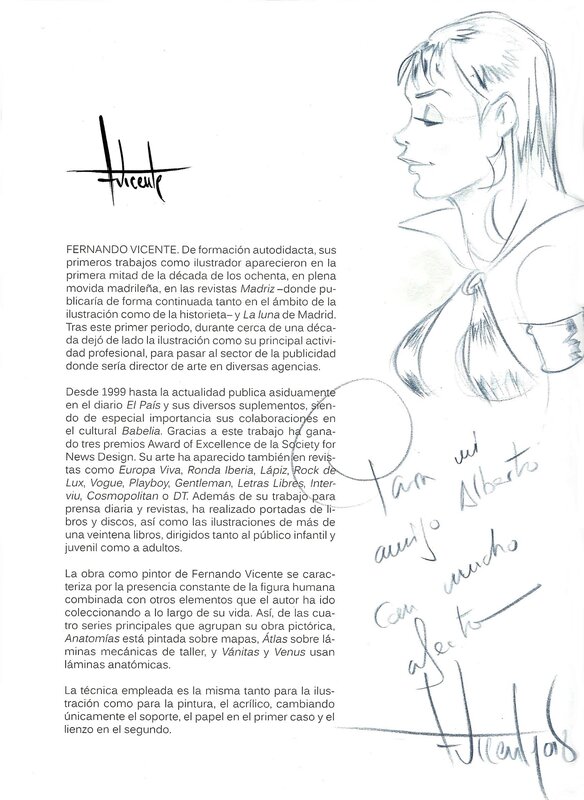 FVicente
FERNANDO VICENTE. De formación autodidacta, sus
primeros trabajos como ilustrador aparecieron en la
primera mitad de la década de los ochenta, en plena
movida madrileña, en las revistas Madriz –donde pu-
blicaría de forma continuada tanto en el ámbito de la
ilustración como de la historieta– y La luna de Madrid.
Tras este primer periodo, durante cerca de una déca-
da dejó de lado la ilustración como su principal activi-
dad profesional, para pasar al sector de la publicidad
donde sería director de arte en diversas agencias.
Desde 1999 hasta la actualidad publica asiduamente
en el diario El País y sus diversos suplementos, sien-
do de especial importancia sus colaboraciones en
el cultural Babelia. Gracias a este trabajo ha gana-
do tres premios Award of Excellence de la Society for
News Design. Su arte ha aparecido también en revis-
tas como Europa Viva, Ronda Iberia, Lápiz, Rock de
Lux, Vogue, Playboy, Gentleman, Letras Libres, Inter-
viu, Cosmopolitan o DT. Además de su trabajo para
prensa diaria y revistas, ha realizado portadas de li-
bros y discos, así como las ilustraciones de más de
una veintena libros, dirigidos tanto al público infantil y
juvenil como a adultos.
La obra como pintor de Fernando Vicente se carac-
teriza por la presencia constante de la figura humana
combinada con otros elementos que el autor ha ido
coleccionando a lo largo de su vida. Así, de las cua-
tro series principales que agrupan su obra pictórica,
Anatomías está pintada sobre mapas, Átlas sobre lá-
minas mecánicas de taller, y Vánitas y Venus usan
láminas anatómicas.
La técnica empleada es la misma tanto para la ilus-
tración como para la pintura, el acrílico, cambiando
únicamente el soporte, el papel en el primer caso y el
lienzo en el segundo.
Para mi
amigo Alberto
Con mucho
afecto
FVicente